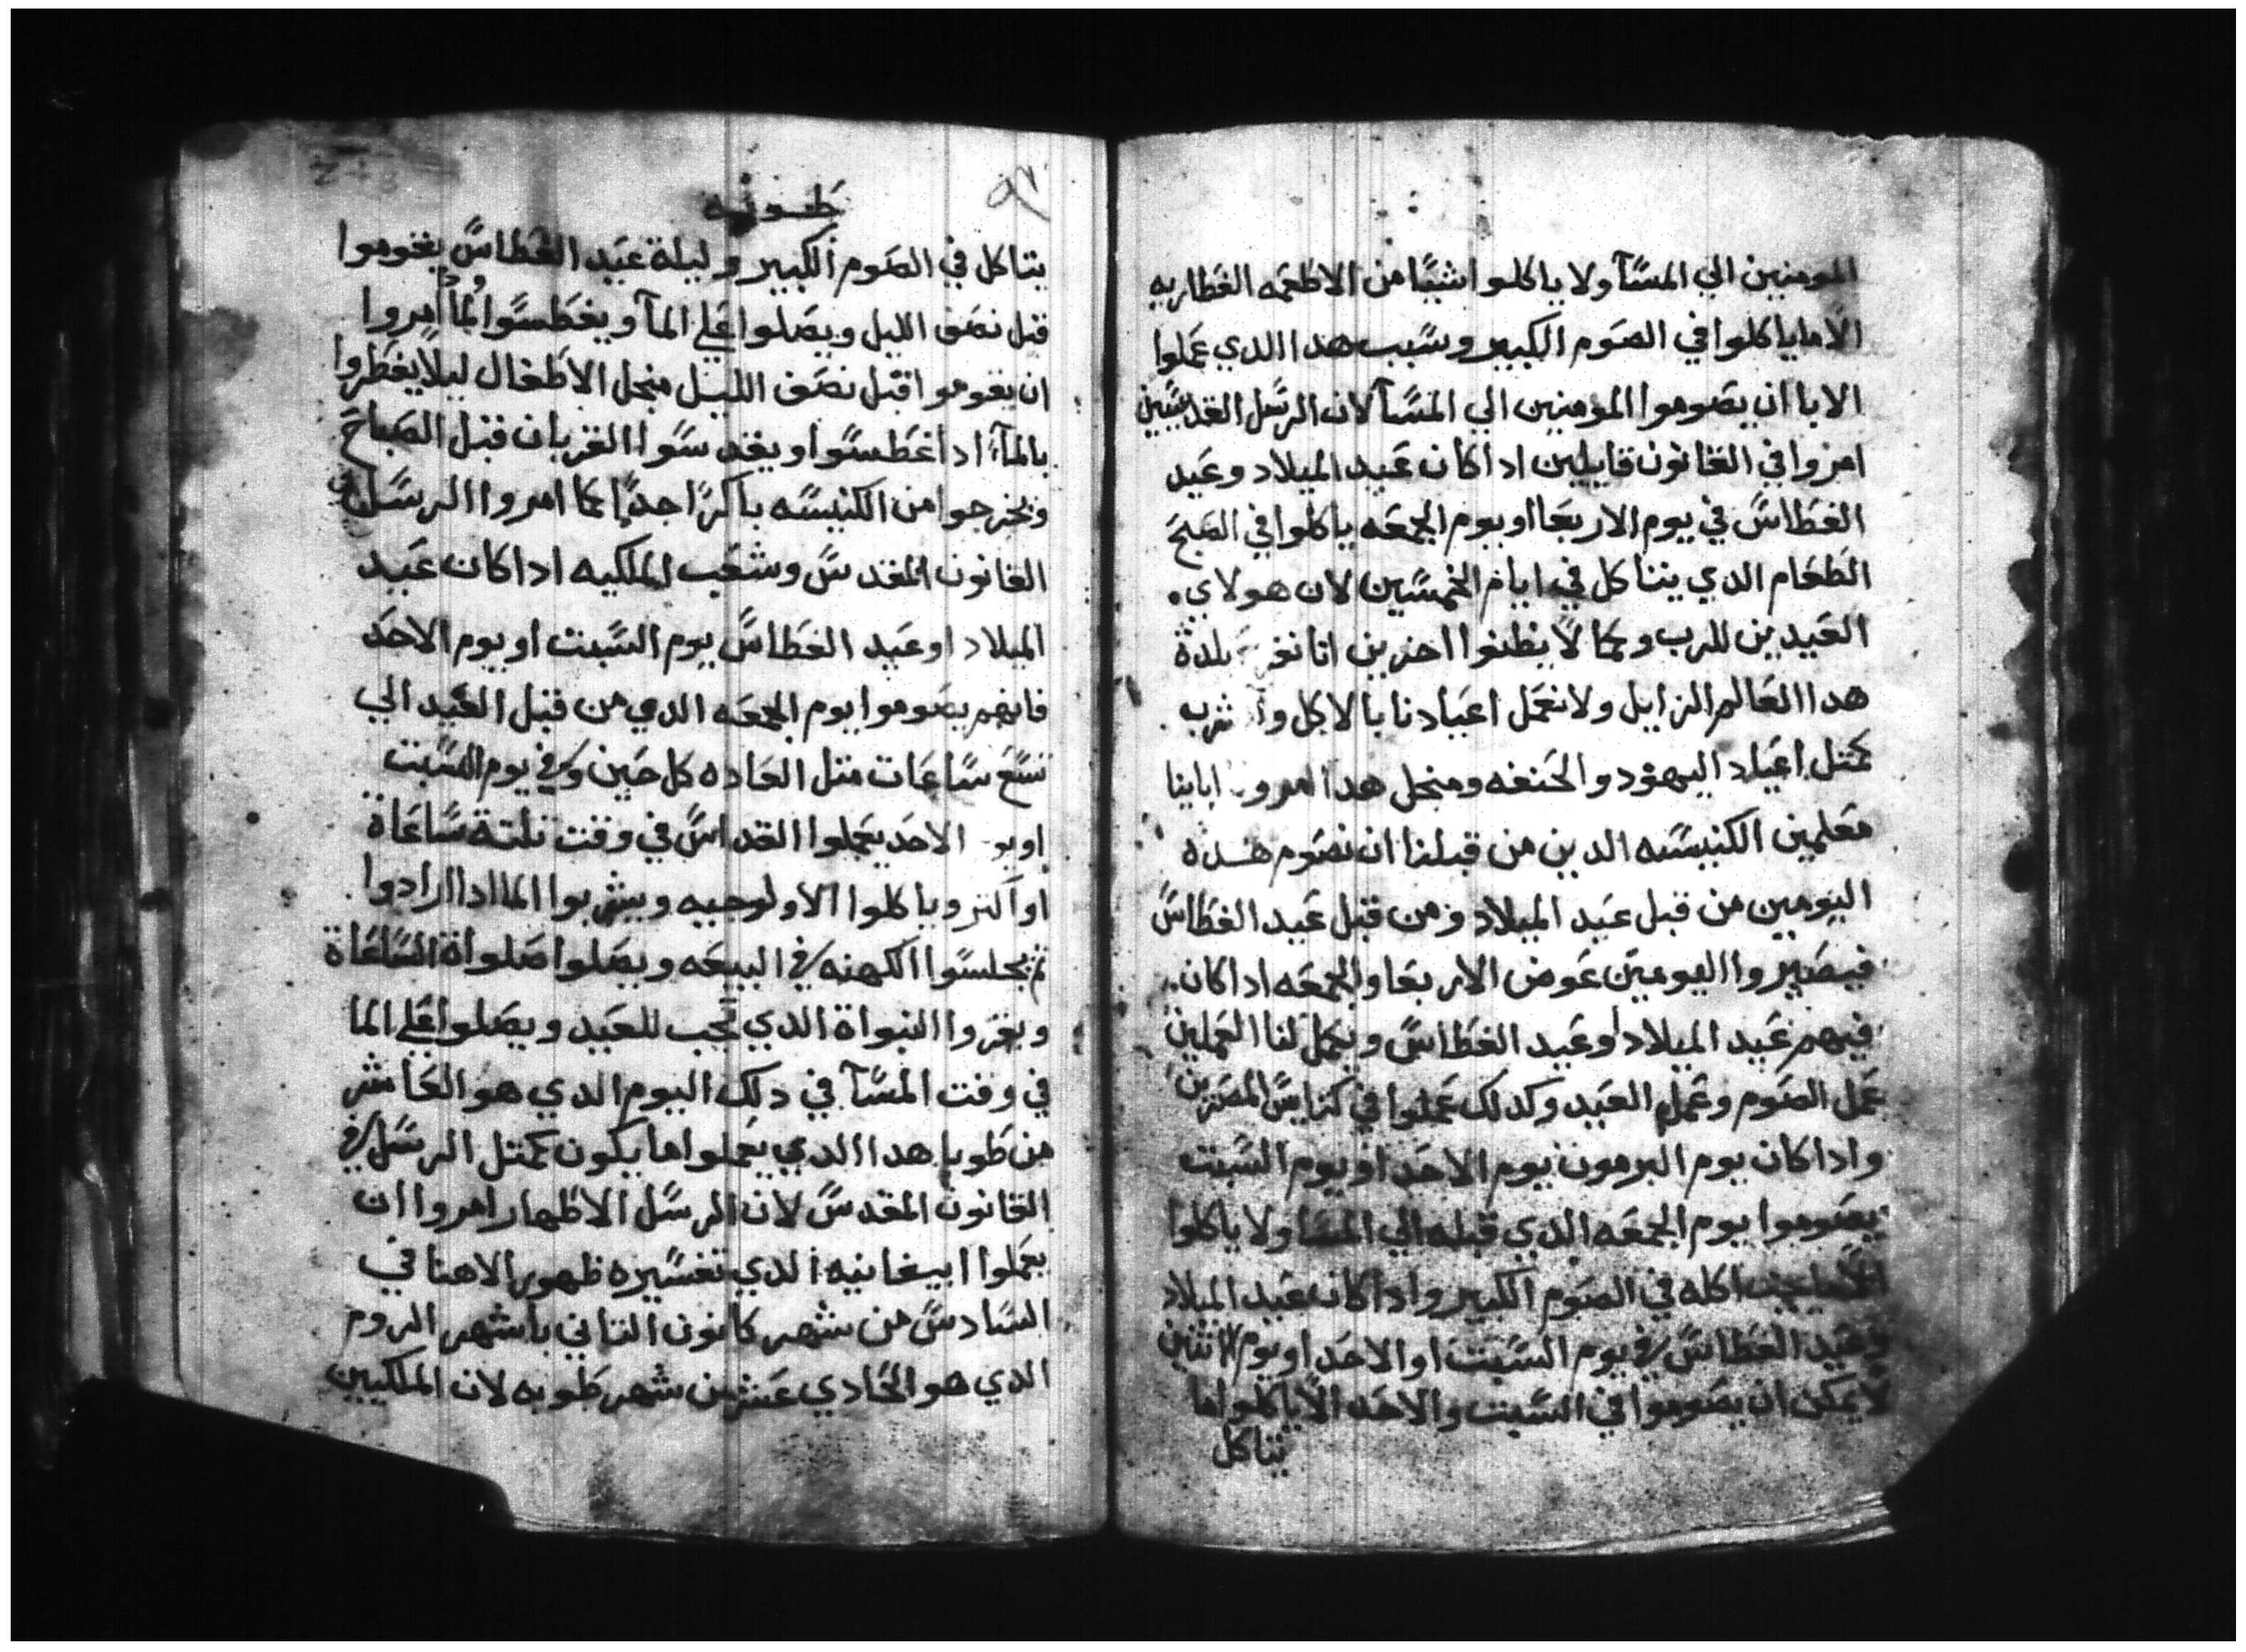 المومنين الي المسآ ولا ياكلوا شيًا من الاطعمه الفطاريه
الا ما ياكلوا في الصوم الكبير وسبب هدا الدي عملوا
الابا ان يصوموا المومنين الي المسآ لان الرسل القديسين
امروا في القانون قايلين ادا كان عيد الميلاد وعيد
الغطاس في يوم الاربعا او يوم الجمعه ياكلوا في الصبح
الطعام الدي يتاكل في ايام الخمسين لان هولاي
العيدين للرب وكما لا يظنوا اخرين اننا
هدا العالم الزايل ولا نعمل اعيادنا بالاكل و
كمتل اعياد اليهود والحنفه ومنجل هدا امرو ابابنا
معلمين الكنيسه الدين من قبلنا ان نصوم هده
اليومين من قبل عيد الميلاد ومن قبل عيد الغطاس
فيصيروا اليومين عوض الاربعا والجمعه ادا كان
فيهم عيد الميلاد او عيد الغطاس ويكمل لنا العملين
عمل الصوم وعمل العيد وكدلك عملوا في كنايس المصريين
وادا كان يوم البرمون يوم الاحد او يوم السبت
يصوموا يوم الجمعه الدي قبله الي المسا ولا ياكلوا
اكله في الصوم الكبير وادا كان عيد الميلاد
وعيد الغطاس في يوم السبت او الاحد او يوم الاثنين
لا يمكن ان يصوموا في السبت والاحد الا ياكلوا ما
يتاكل
٩٧
طوبه
يتاكل في الصوم الكبير وليلة عيد الغطاس يقوموا
قبل نصف الليل ويصلوا علي المآ ويغطسوا امروا
ان يقوموا قبل نصف الليل منجل الاطفال ليلا يفطروا
بالمآ ادا غطسوا ويقدسوا القربان قبل الصباح
ويخرجوا من الكنيسه باكرًا جدًا كما امروا الرسل في
القانون المقدس وشعب الملكيه ادا كان عيد
الميلاد او عيد الغطاس يوم السبت او يوم الاحد
فانهم يصوموا يوم الجمعه الدي من قبل العيد الي
تسع ساعات متل العاده كل حين وفي يوم السبت
او الاحد يعملوا القداس في وقت تلتة ساعاة
او اكتر وياكلوا الاولوجيه ويشربوا الما ادا ارادوا
تم يجلسوا الكهنه في البيعه ويصلوا صلواة الساعاة
ويقروا النبواة الدي تجب للعيد ويصلوا علي الما
في وقت المسآ في دلك اليوم الدي هو العاشر
من طوبا هدا الدي يعملوا ما يكون كمتل الرسل في
القانون المقدس لان الرسل الاطهار امروا ان
يعملوا ابيفانيه الدي تفسيره ظهور الاهنا في
السادس من شهر كانون التاني باشهر الروم
الدي هو الحادي عشر من شهر طوبه لان الملكيين